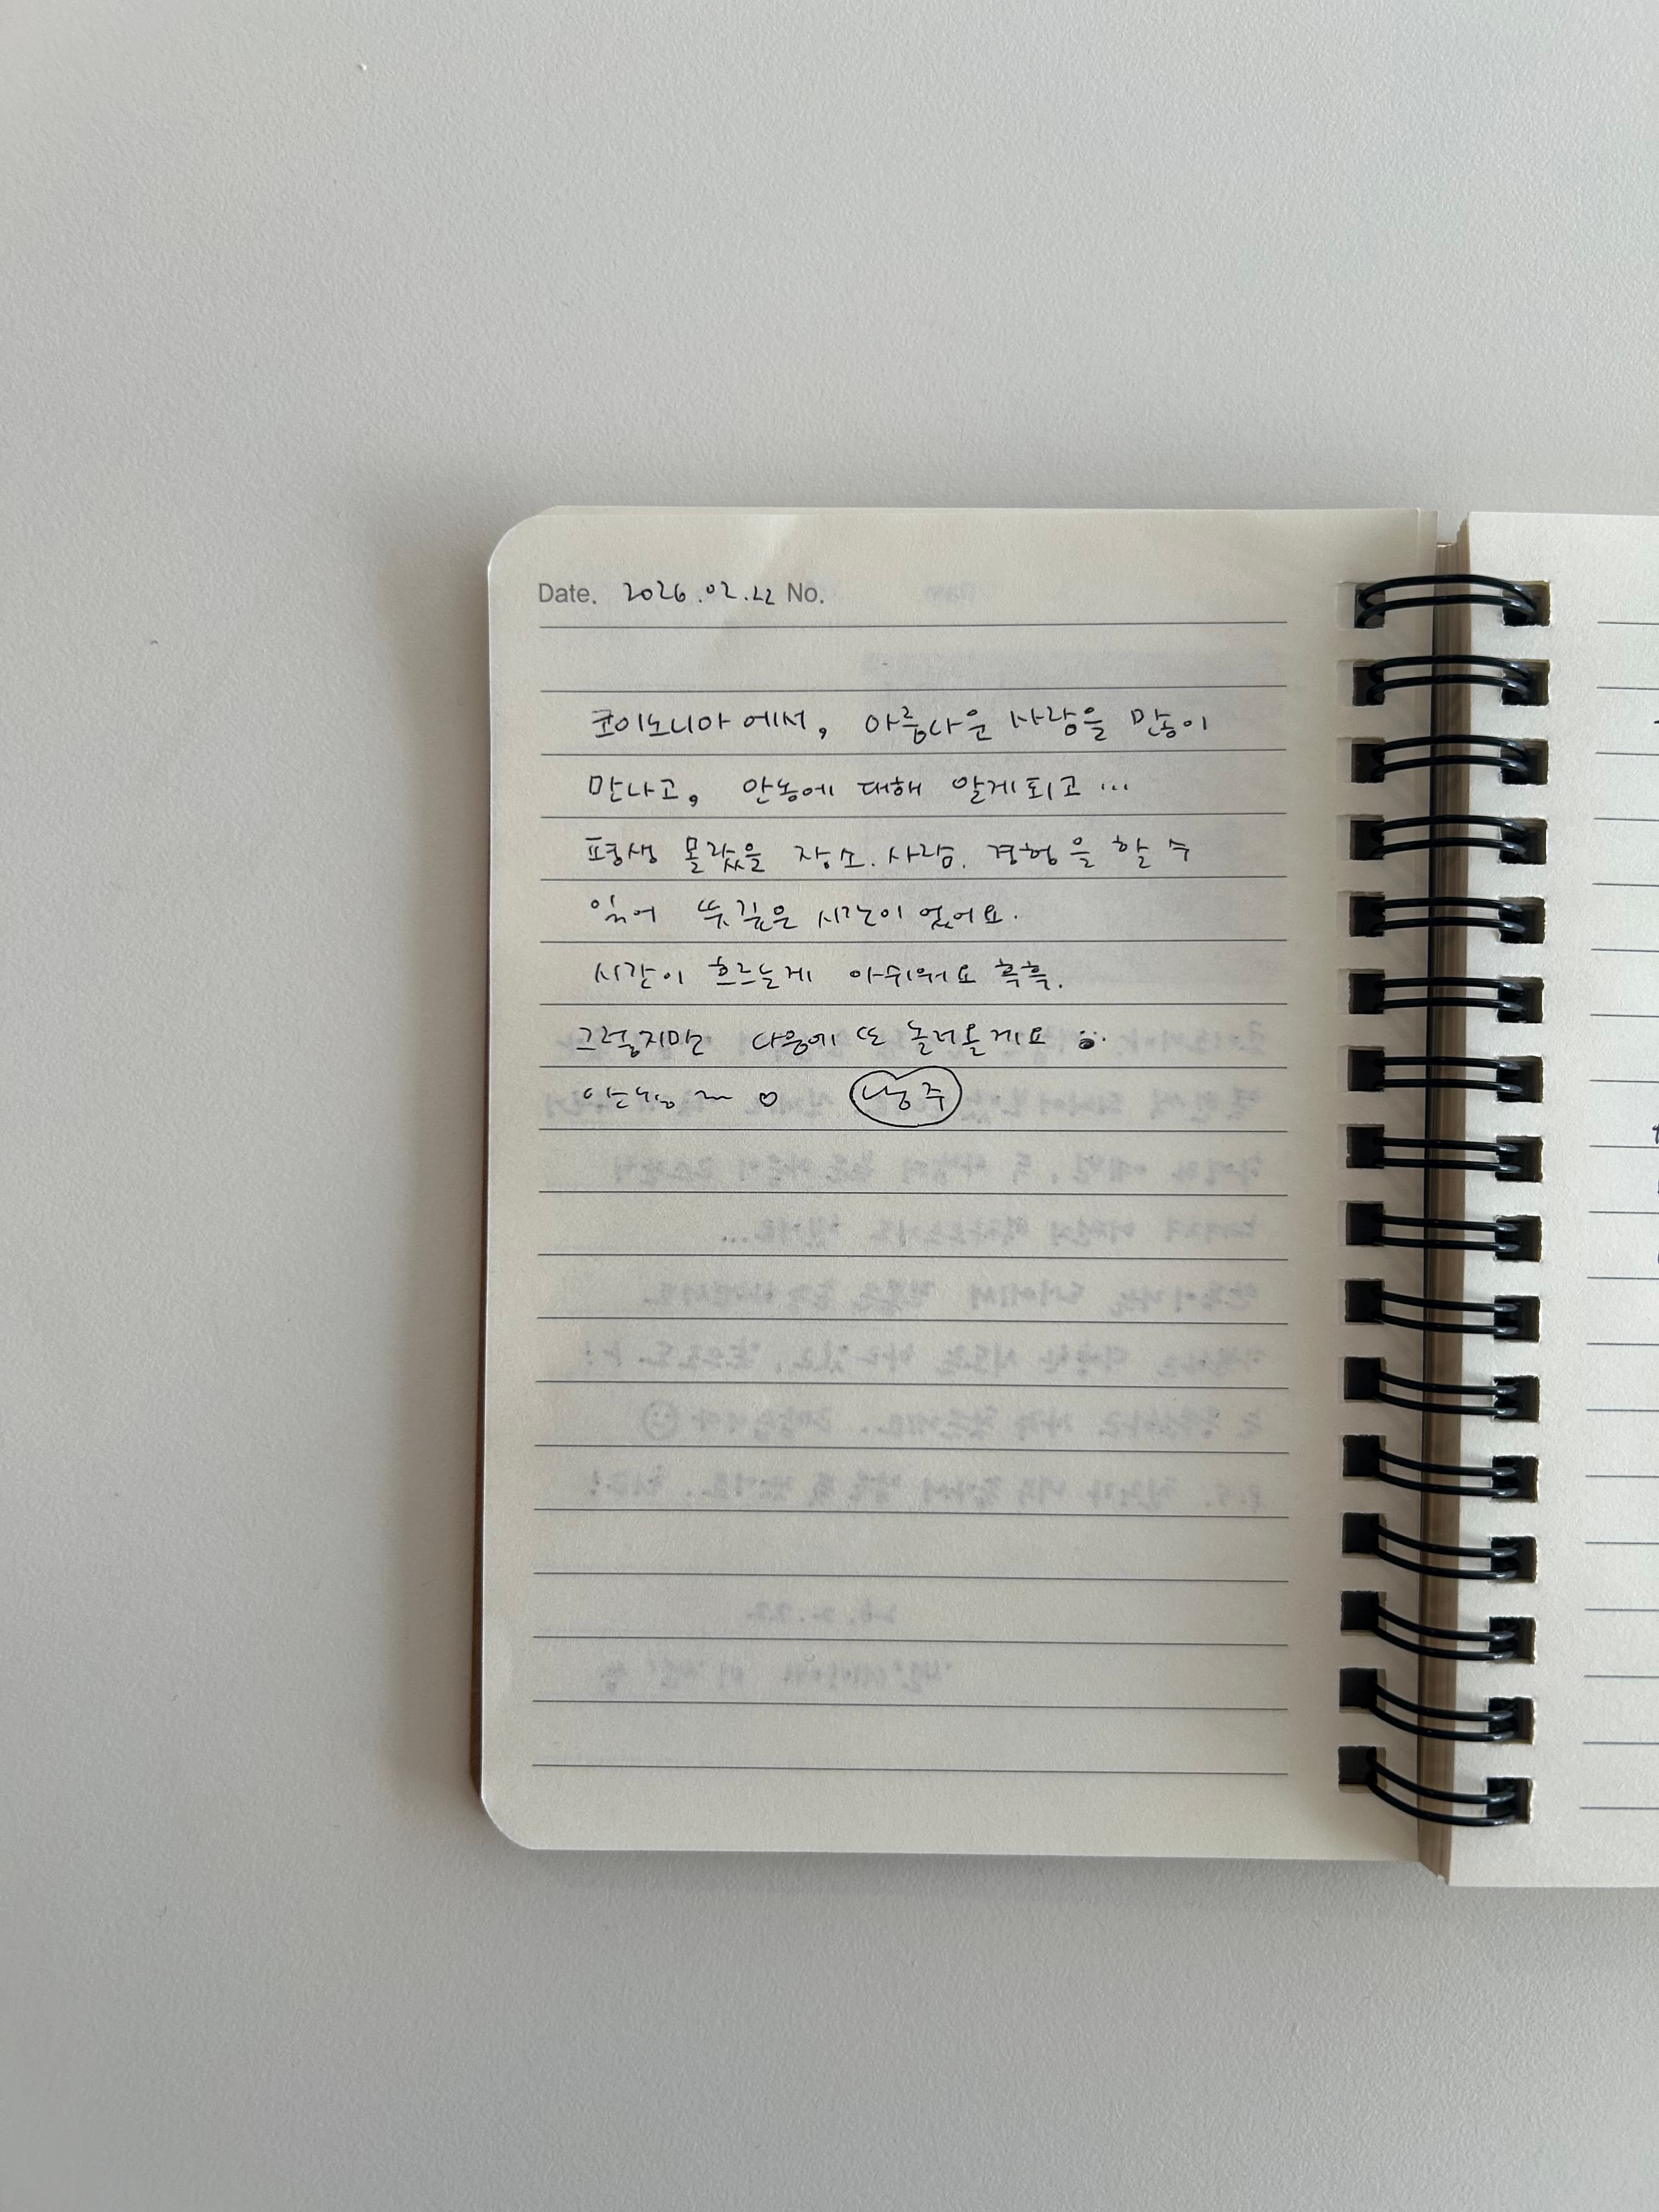 Date. 2026.02.22 No.
코이노니아에서, 아름다운 사람을 많이
만나고, 안농에 대해 알게되고 ...
평생 몰랐을 장소. 사람. 경험을 할 수
있어 뜻깊은 시간이 었어요.
시간이 흐르는게 아쉬워요 흑흑.
그렇지만 다음에 또 놀러올게요
안녕 ~ ♡ 낭주